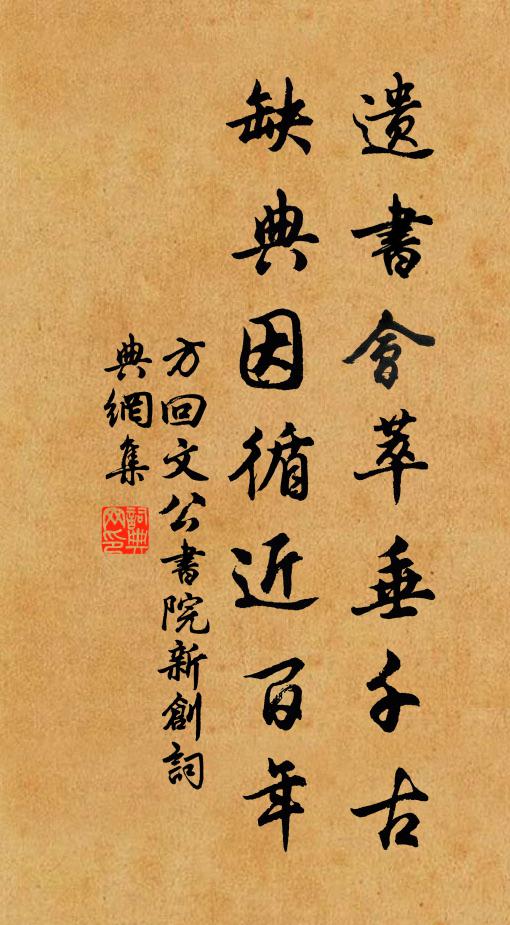 遺書會萃垂千古
缺典因循近百年
方回文公書院新創詞
典網集
詞典
网印